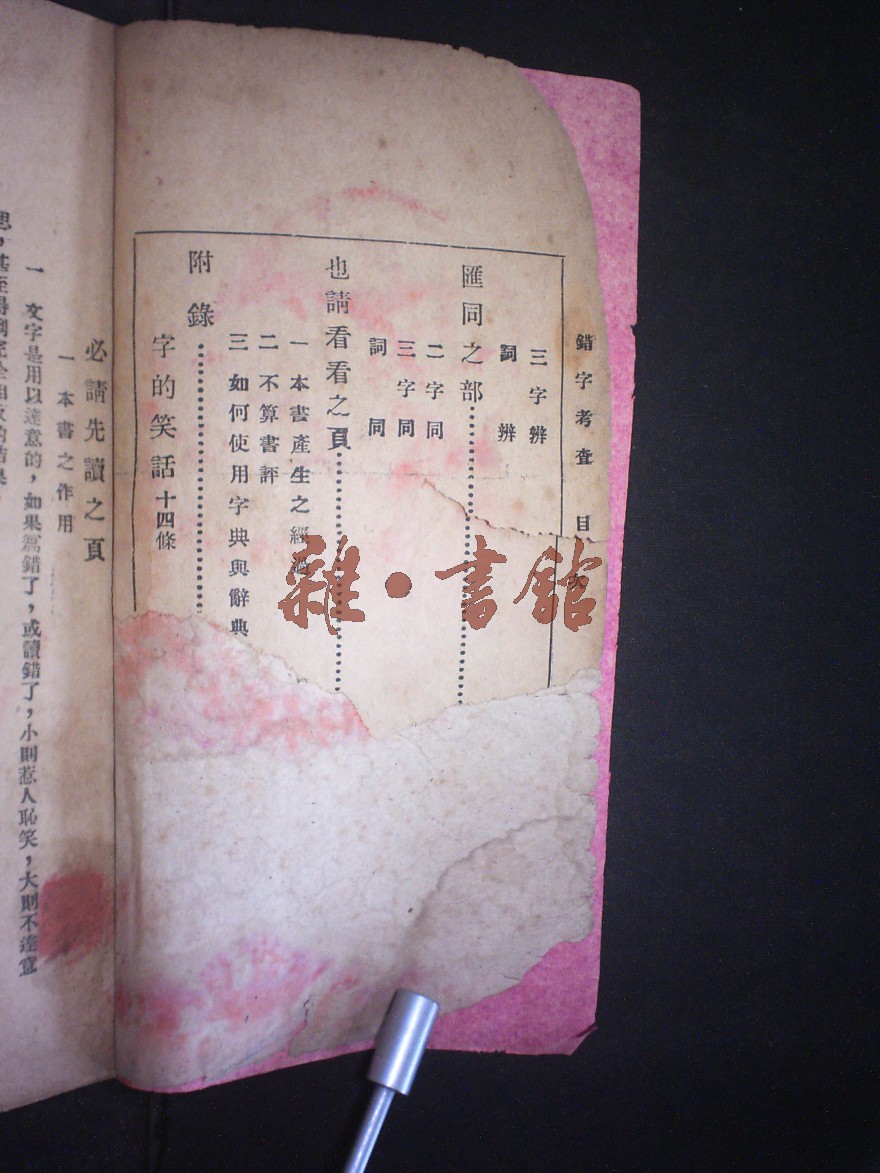 錯字考查 目次
三字辨
詞辨
匯同之部
二字同
三字同
詞同
也請看看之頁
一 本書產生之經過
二 不算書評
三 如何使用字典與辭典
附錄
字的笑話 十四條
必請先讀之頁
一 本書之作用
一 文字是用以達意的，如果寫錯了，或讀錯了，小則惹人恥笑，大則不達意
思，甚至得到完全相反的結果。
雜·書館